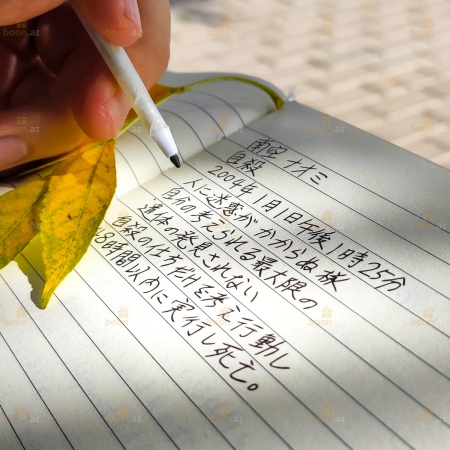 南空 ナオミ
自殺
2004年1月1日午後1時25分
人に迷惑がかからぬ様
自分の考えられる最大限の
遺体の発見されない
自殺の仕方だけを考え行動し
48時間以内に実行し死亡。
boon.az